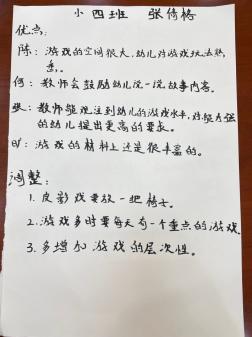 小四班 张倚榕
优点:
陈:游戏的空间很大,幼儿对游戏玩法熟
悉。
何:教师会鼓励幼儿说一说故事内容。
张:教师能观注到幼儿的游戏水平,对能力强
的幼儿提出更高的要求。
旷:游戏的材料上还是很丰富的。
调整:
1.皮影戏要放一把椅子。
2.游戏多时要每天有一个重点的游戏
3.多增加游戏的层次性。